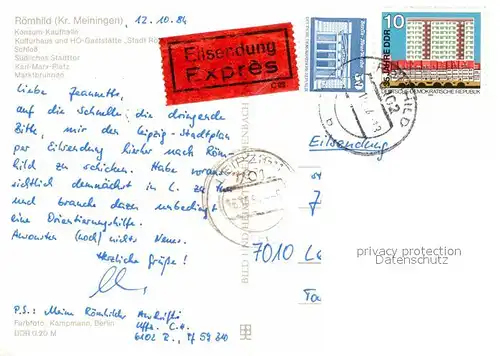 Römhild (Kr. Meiningen)
12.10.84
Konsum-Kaufhalle
Kulturhaus und HO-Gaststätte „Stadt
Schloß
Südliches Stadttor
Karl-Marx-Platz
Marktbrunnen
Eilsendung
Exprès
50
10
35 JAHRE DDR
DEUTSCHE DEMOKRATISCHE REPUBLIK
Liebe Jeannette,
auf die Schnelle die dringende
Bitte, mir den Leipzig-Stadtplan
per Eilsendung hierher nach Röm
hild zu schicken. Habe voraus
sichtlich demnächst in L. zu tun
und brauche dazu unbedingt
eine Orientierungshilfe.
Ansonsten (noch) nichts Neues.
Herzliche Grüße!
P.S.: Meine Römhilder Anschrift:
6102 R., PF 59 310
Farbfoto: Kampmann, Berlin
Eilsendung
7010 Le
privacy protection
Datenschutz